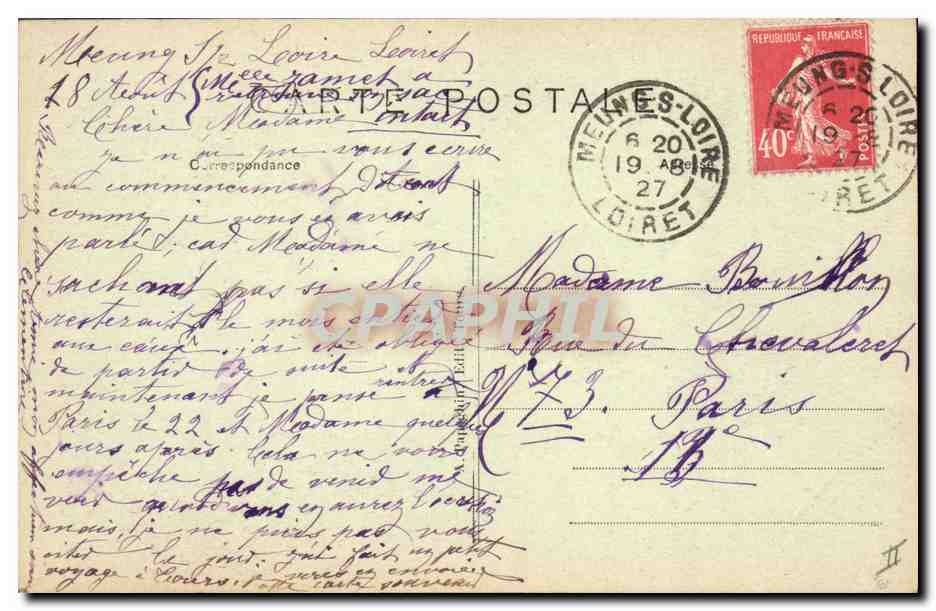 Meung s/ Loire Loiret
18 Août { Melle zamet a
CARTE POSTALE
Chère Madame
Correspondance
je n'ai pu vous ecrire
au commencement
comme je vous en avais
parlé. car Madame ne
sachant pas si elle
resterait le mois entier
aux eaux. j'ai été obligée
de partir de suite et
maintenant je pense rentrer à
Paris le 22 et Madame quelques
jours après. Cela ne vous
empêche pas de venir me
voir quand vous en aurez l'occasion
mais je ne puis pas vous
le jour. j'ai fait un petit
voyage à Tours, je vous en envoie
une carte souvenir
REPUBLIQUE FRANÇAISE
40c
POSTES
MEUNG-S-LOIRE
6 20
19 -8
27
LOIRET
MEUNG-S-LOIRE
6 20
19 -8
27
LOIRET
Adresse
Madame Bouillon
Rue du Chevaleret
N° 73. Paris
13e
CPAPHIL
II